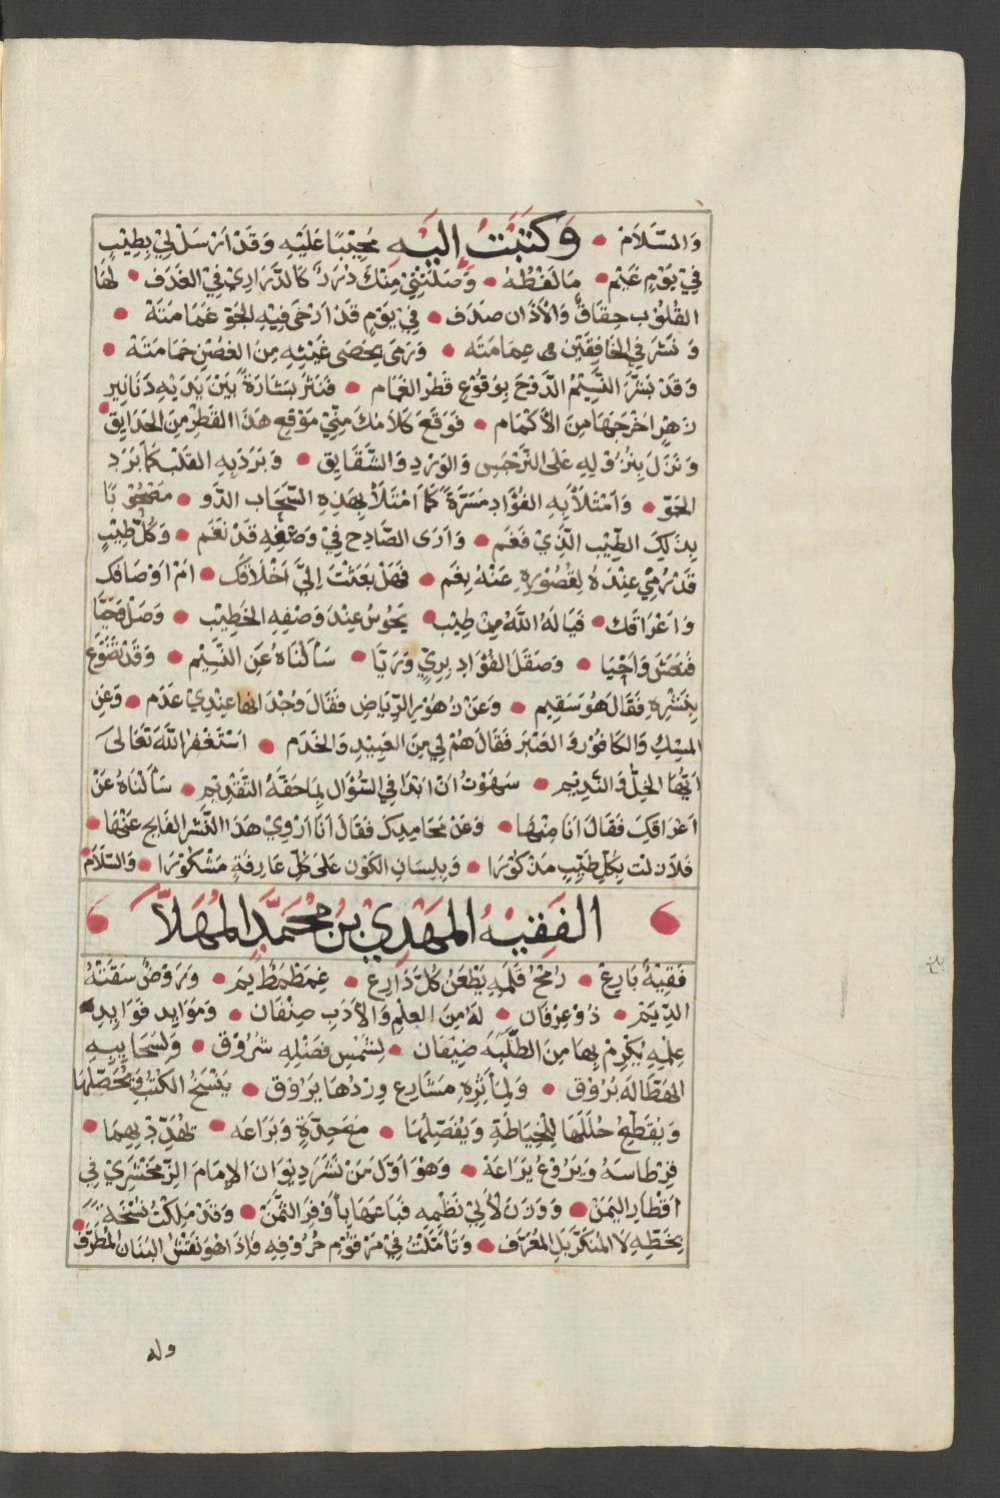 والسلام • وكتبت إليه مجيبا عليه وقد ارسل لي بطيب
في يوم غيم • ما لفظه • وصلتني منك درر كالدراري في الغدف • لها
القلوب حقاق والأذان صدف • في يوم قد ارخى فيه الجو غمامته •
ونشر في الخافقين عمامته • ورمى بحصى غيثه من الغصن حمامته •
وقد بشر النسيم الدوح بوقوع قطر الغمام • فنثر بشارة بين يديه دنانير
زهر اخرجها من الأكمام • فوقع كلامك مني موقع هذا القطر من الحدايق •
ونزل بنزوله على النرجس والورد والشقايق • وبرد به القلب كما برد
الجو • وامتلأ به الفؤاد مسرة كما امتلأ بهذه السحاب الدو • مصحوبا
بذلك الطيب الذي فغم • وارى الصادح في وصفه قد نغم • وكل طيب
قد رمي عنده لقصوره عنه بغم • فهل بعثت الي اخلاقك • ام اوصافك
واعراقك • فيا له الله من طيب • يحوس عند وصفه الخطيب • وصل فحيا
فنصر واحيا • وصقل الفؤاد بري وريا • سألناه عن النسيم • وقد تضوع
بنشره فقال هو سقيم • وعن زهور الرياض فقال وجدانها عندي عدم • وعن
المسك والكافور والعنبر فقال هم لي من العبيد والخدم • استغفر الله تعالى
ايها الخل والنديم • سهوت ان ابتدا في السؤال بما حقه التقديم • سألناه عن
اعراقك فقال انا منها • وعن محامدك فقال انا اروي هذا النشر الفايح عنها •
فلا زلت بكل طيب مذكورا • وبلسان الكون على كل عارفة مشكورا • والسلام
الفقيه المهدي بن محمد المهلا
فقيه بارع • رمح قلمه يطعن كل دارع • غمطمطم يم • وروض سقته
الديم • ذو عرفان • له من العلم والأدب صنفان • وموايد فوايد
علمه يكرم بها من الطلبة ضيفان • لشمس فضله شروق • ولسحايبه
الهطاله بروق • ولمآثره مشارع وردها يروق • ينسخ الكتب ويحصلها
ويقطع حللها للخياطة ويفصلها • مع حدة وبراعه • تهذ بهما •
قرطاسه ويروع يراعه • وهو اول من نشر ديوان الإمام الزمخشري في
اقطار اليمن • ووزن لألي نظمه فباعها بأوفر الثمن • وقد ملكت نسخة
بخطه لا المنكر بل المعرف • وتأملت في مرقوم حروفه فاذا هو نقش البنان المطرف
وله